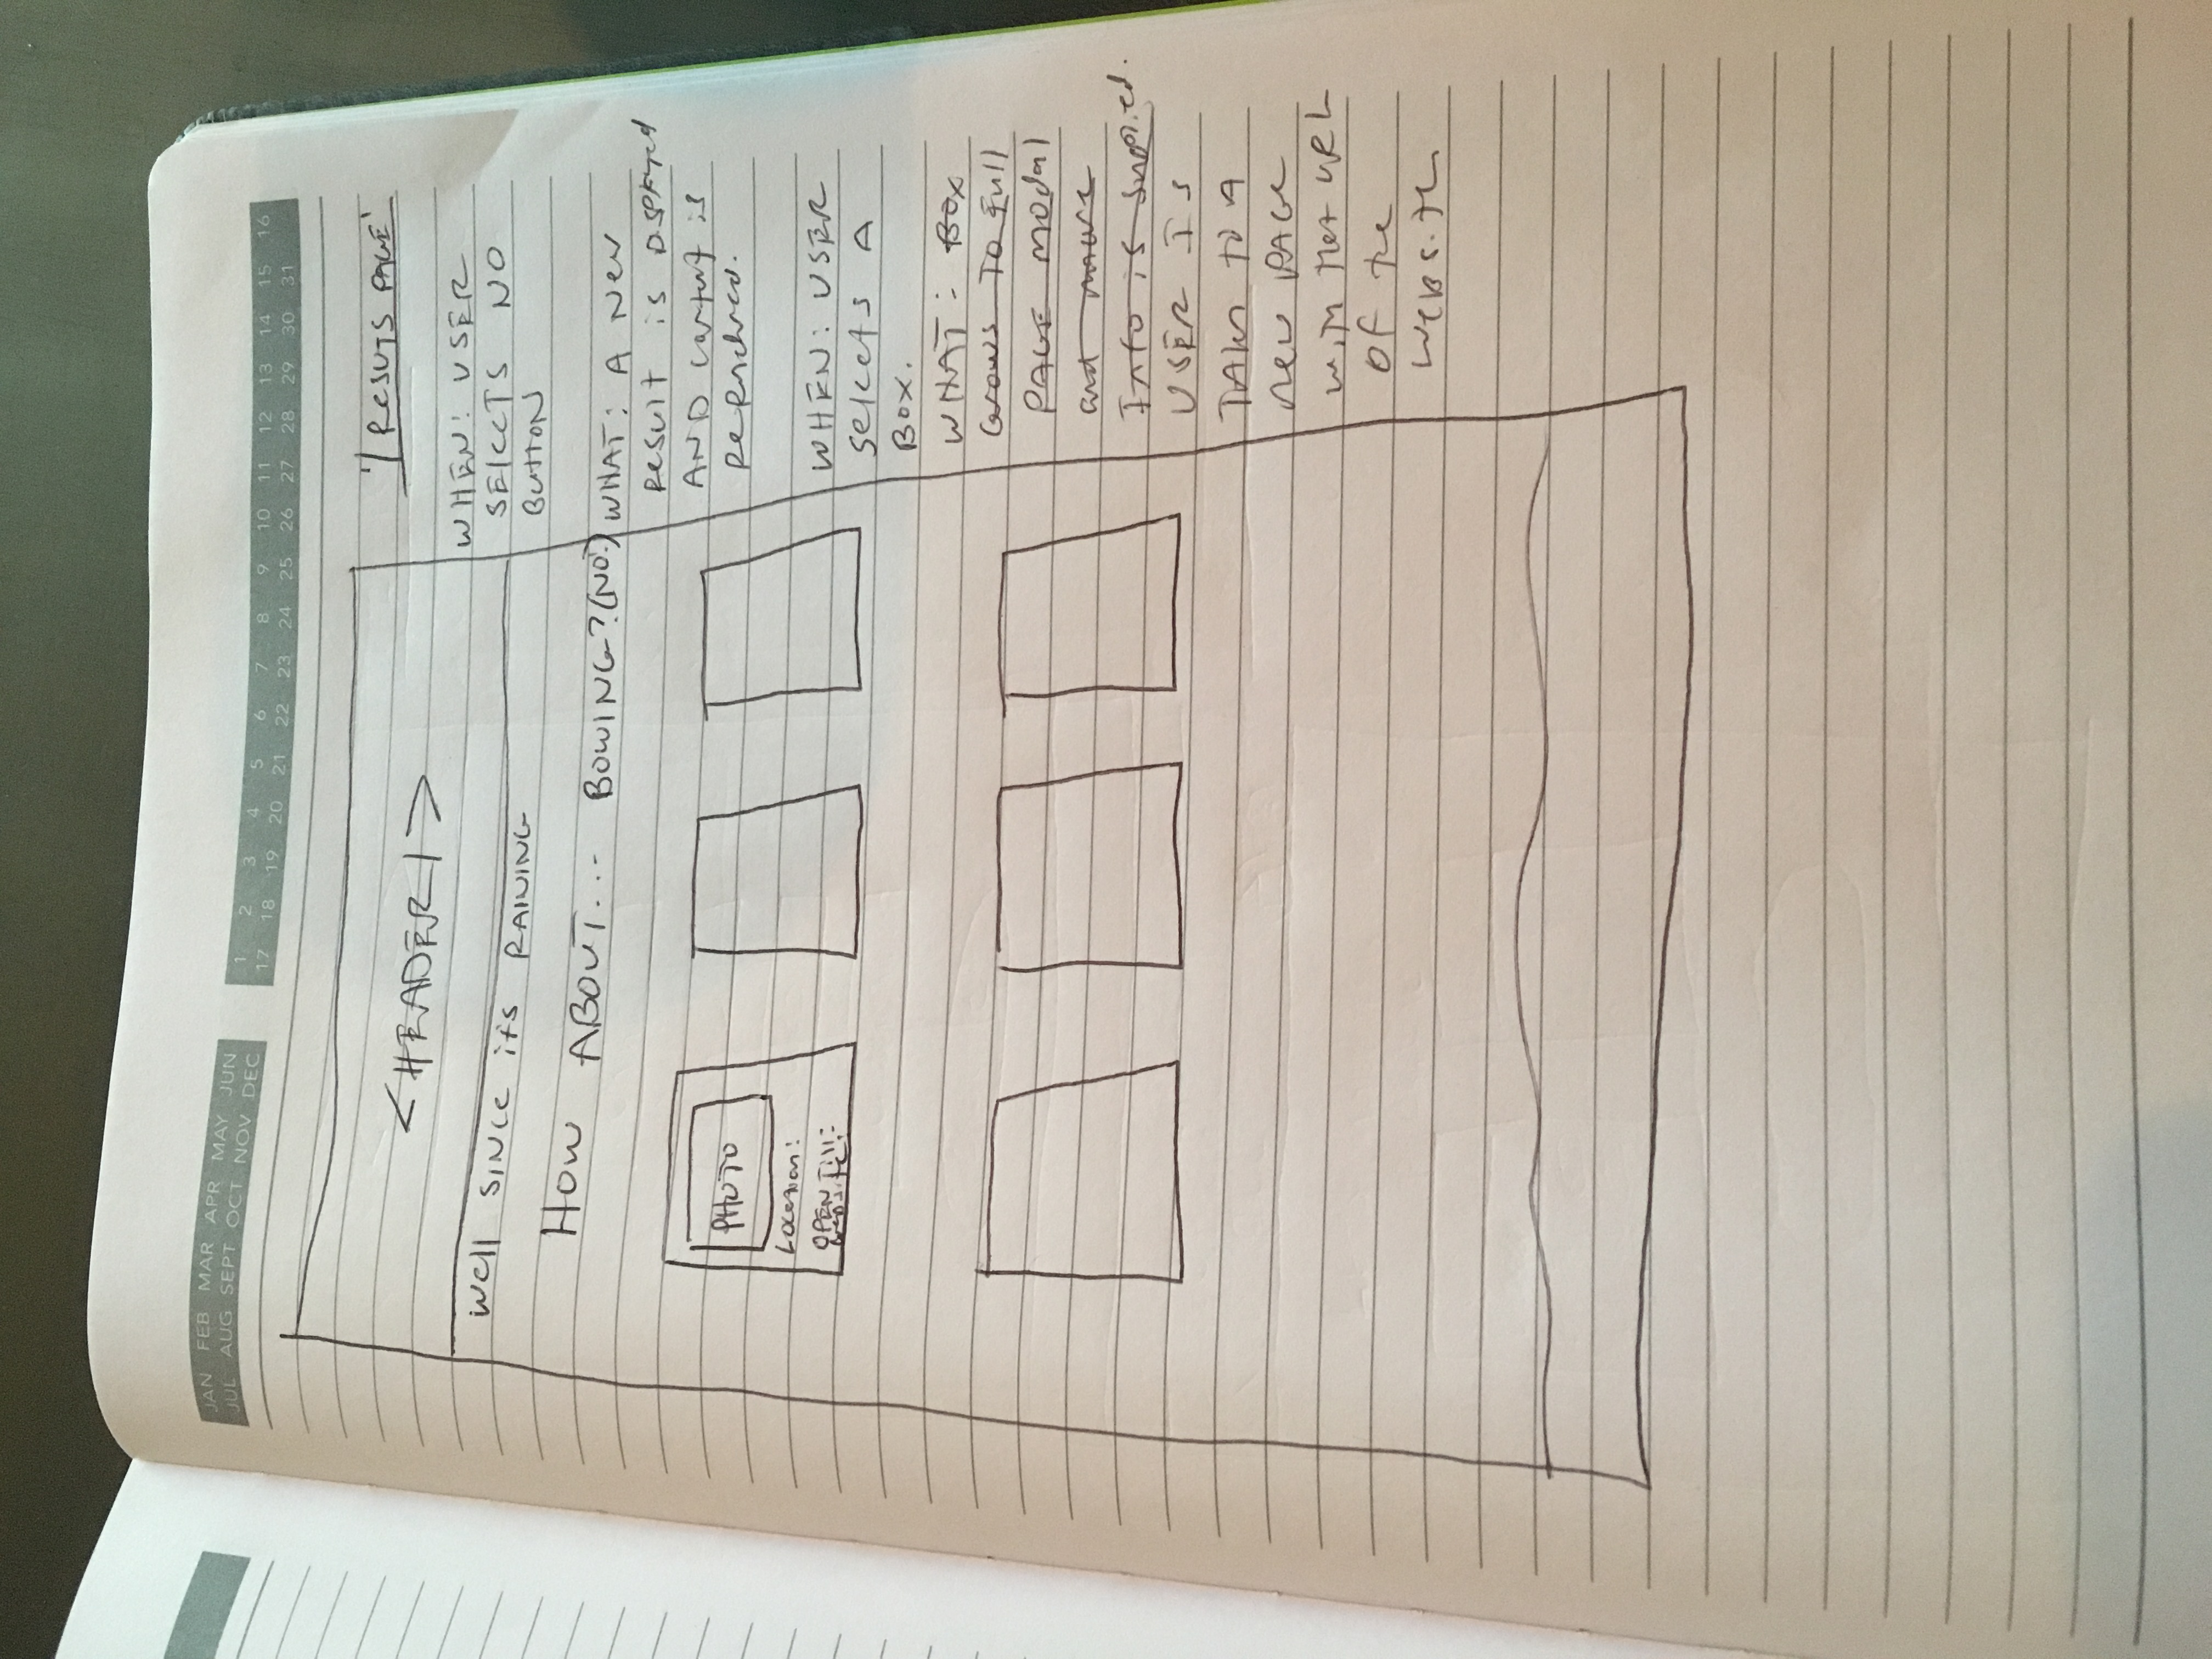 JAN FEB MAR APR MAY JUN
JUL AUG SEPT OCT NOV DEC
1 2 3 4 5 6 7 8 9 10 11 12 13 14 15 16
17 18 19 20 21 22 23 24 25 26 27 28 29 30 31
<HEADER/>
Well SINCE its RAINING
HOW ABOUT... BOWING? (NO!)
PHOTO
Location:
OPEN Till:
website:
'/ResuTs PAGE'
WHEN: USER
SElecTS NO
BUTTON
WHAT: A New
Result is DISPlAyed
AND content is
WHEN: USER
Selects A
BOX.
WHAT: BOX
Grows To Full
PAGE Modal
and
Info is Supplied.
USER IS
TAken to A
new PAGE
with the URL
OF the
Website